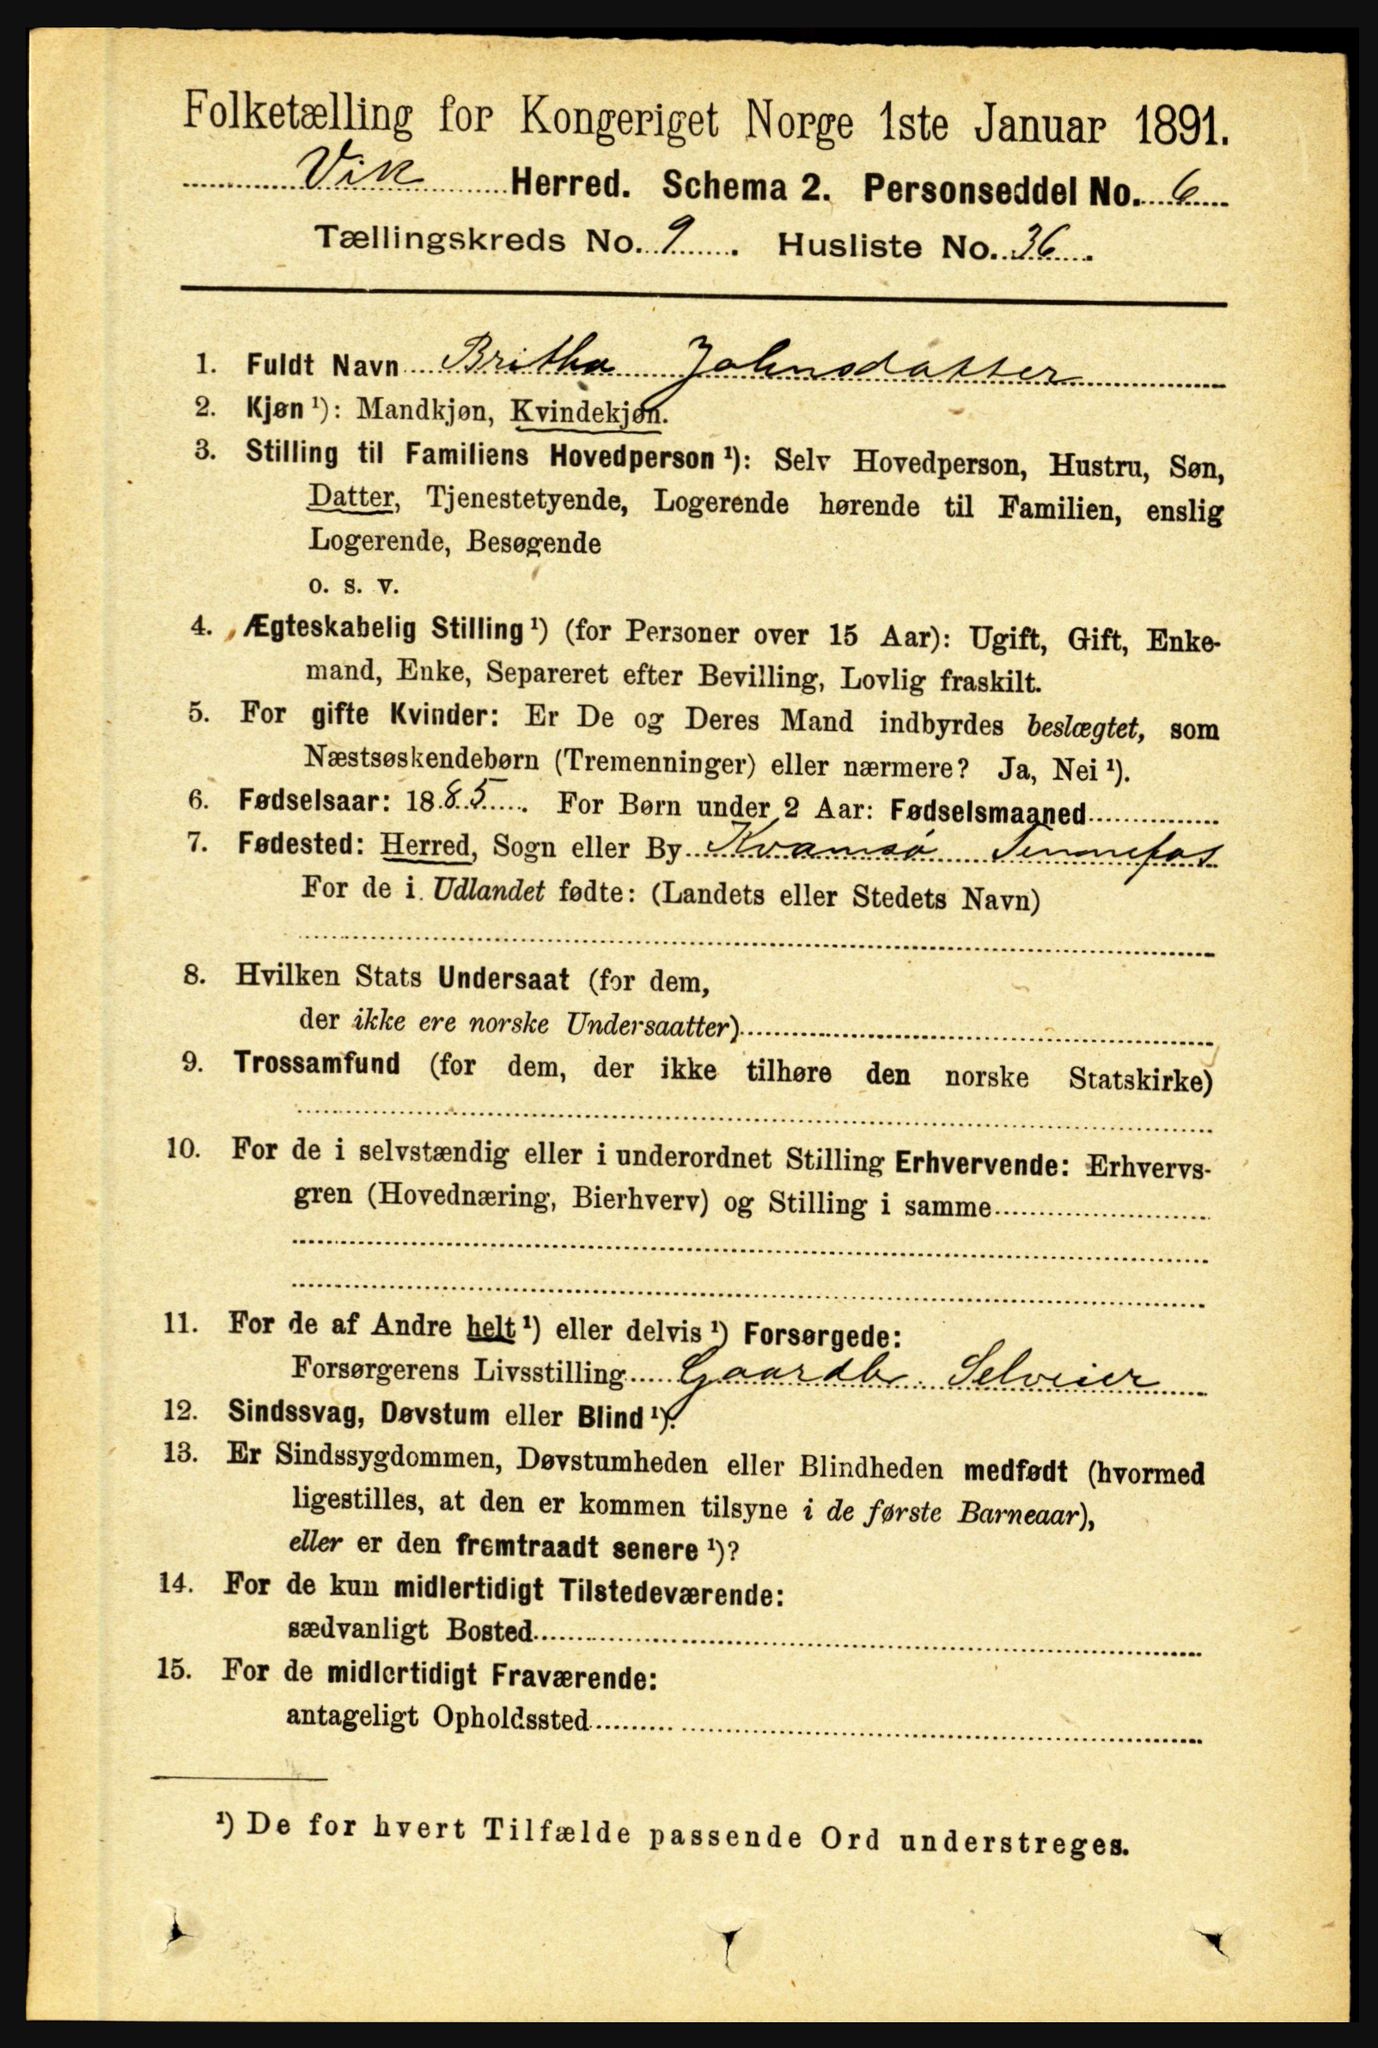 Folketælling for Kongeriget Norge 1ste Januar 1891.
Vik Herred. Schema 2. Personseddel No. 6
Tællingskreds No. 9. Husliste No. 36.
1. Fuldt Navn Britha Johnsdatter
2. Kjøn¹): Mandkjøn, Kvindekjøn.
3. Stilling til Familiens Hovedperson¹): Selv Hovedperson, Hustru, Søn,
Datter, Tjenestetyende, Logerende hørende til Familien, enslig
Logerende, Besøgende
o. s. v.
4. Ægteskabelig Stilling¹) (for Personer over 15 Aar): Ugift, Gift, Enke-
mand, Enke, Separeret efter Bevilling, Lovlig fraskilt.
5. For gifte Kvinder: Er De og Deres Mand indbyrdes beslægtet, som
Næstsøskendebørn (Tremenninger) eller nærmere? Ja, Nei¹).
6. Fødselsaar: 1885. For Børn under 2 Aar: Fødselsmaaned
7. Fødested: Herred, Sogn eller By Kvamsø
For de i Udlandet fødte: (Landets eller Stedets Navn)
8. Hvilken Stats Undersaat (for dem,
der ikke ere norske Undersaatter)
9. Trossamfund (for dem, der ikke tilhøre den norske Statskirke)
10. For de i selvstændig eller i underordnet Stilling Erhvervende: Erhvervs-
gren (Hovednæring, Bierhverv) og Stilling i samme
11. For de af Andre helt¹) eller delvis¹) Forsørgede:
Forsørgerens Livsstilling Gaardbr. Selveier
12. Sindssvag, Døvstum eller Blind¹).
13. Er Sindssygdommen, Døvstumheden eller Blindheden medfødt (hvormed
ligestilles, at den er kommen tilsyne i de første Barneaar),
eller er den fremtraadt senere¹)?
14. For de kun midlertidigt Tilstedeværende:
sædvanligt Bosted
15. For de midlertidigt Fraværende:
antageligt Opholdssted
¹) De for hvert Tilfælde passende Ord understreges.